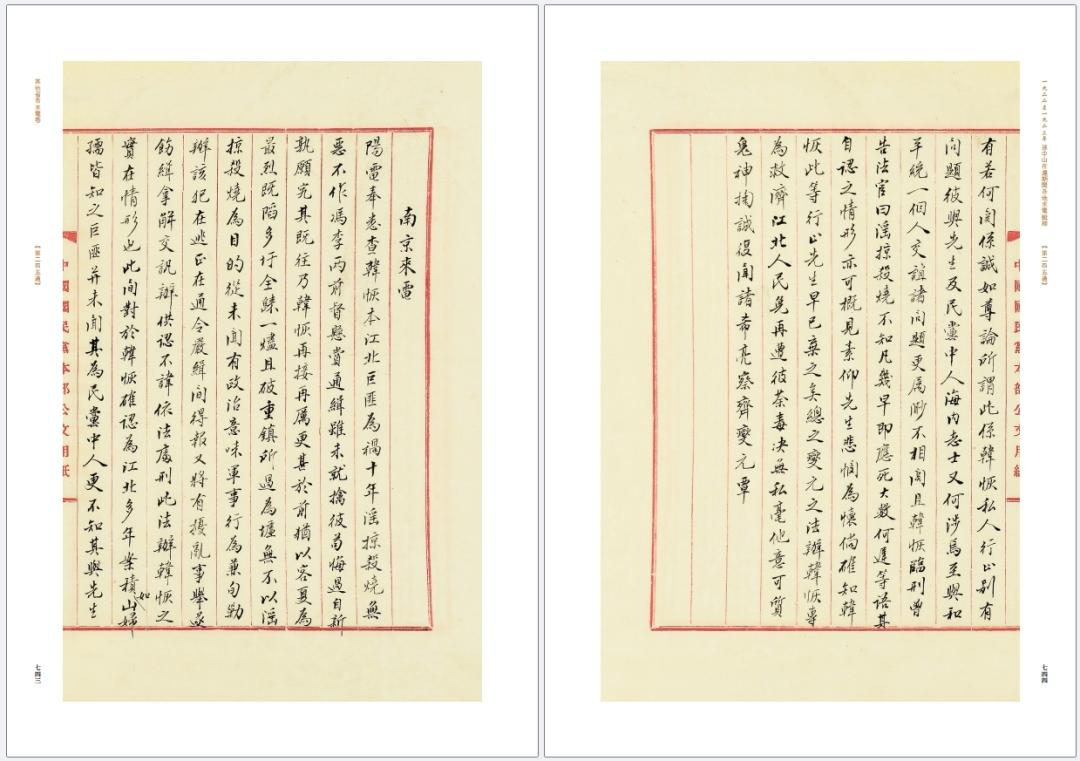 其他省份來電卷
【第二四五通】
七四三
南京來電
陽電奉悉查韓恢本江北巨匪為禍十年滛掠殺燒無
惡不作馮李兩前督懸賞通緝雖未就擒彼苟悔過自新
孰願究其既往乃韓恢再接再厲更甚於前猶以客夏為
最烈既陷多圩全一燼且破重鎮所過為墟無不以滛
掠殺燒為目的從未聞有政治意味軍事行為兼旬勦
辦該犯在逃正在通令嚴緝間得報又將有擾亂事舉亟
飭緝拿解交訊辦供認不諱依法處刑此法辦韓恢之
實在情形也此間對於韓恢確認為江北多年案積如山婦
孺皆知之巨匪并未聞其為民黨中人更不知其與先生
中國國民黨本部公文用紙
一九二二至一九二三年 孫中山在滬期間各地來電
【第二四五通】
七四四
中國國民黨本部公文用紙
有若何關係誠如尊論所謂此係韓恢私人行止別有
問題彼與先生及民黨中人海內志士又何涉焉至與和
平統一個人交誼諸問題更屬渺不相關且韓恢臨刑曾
告法官曰滛掠殺燒不知凡幾早即應死大數何逃等語其
自認之情形亦可概見素仰先生悲憫為懷倘確知韓
恢此等行止先生早已棄之矣總之燮元之法辦韓恢專
為救濟江北人民免再遭彼荼毒決無私毫他意可質
鬼神掬誠復聞諸希亮察齊燮元覃